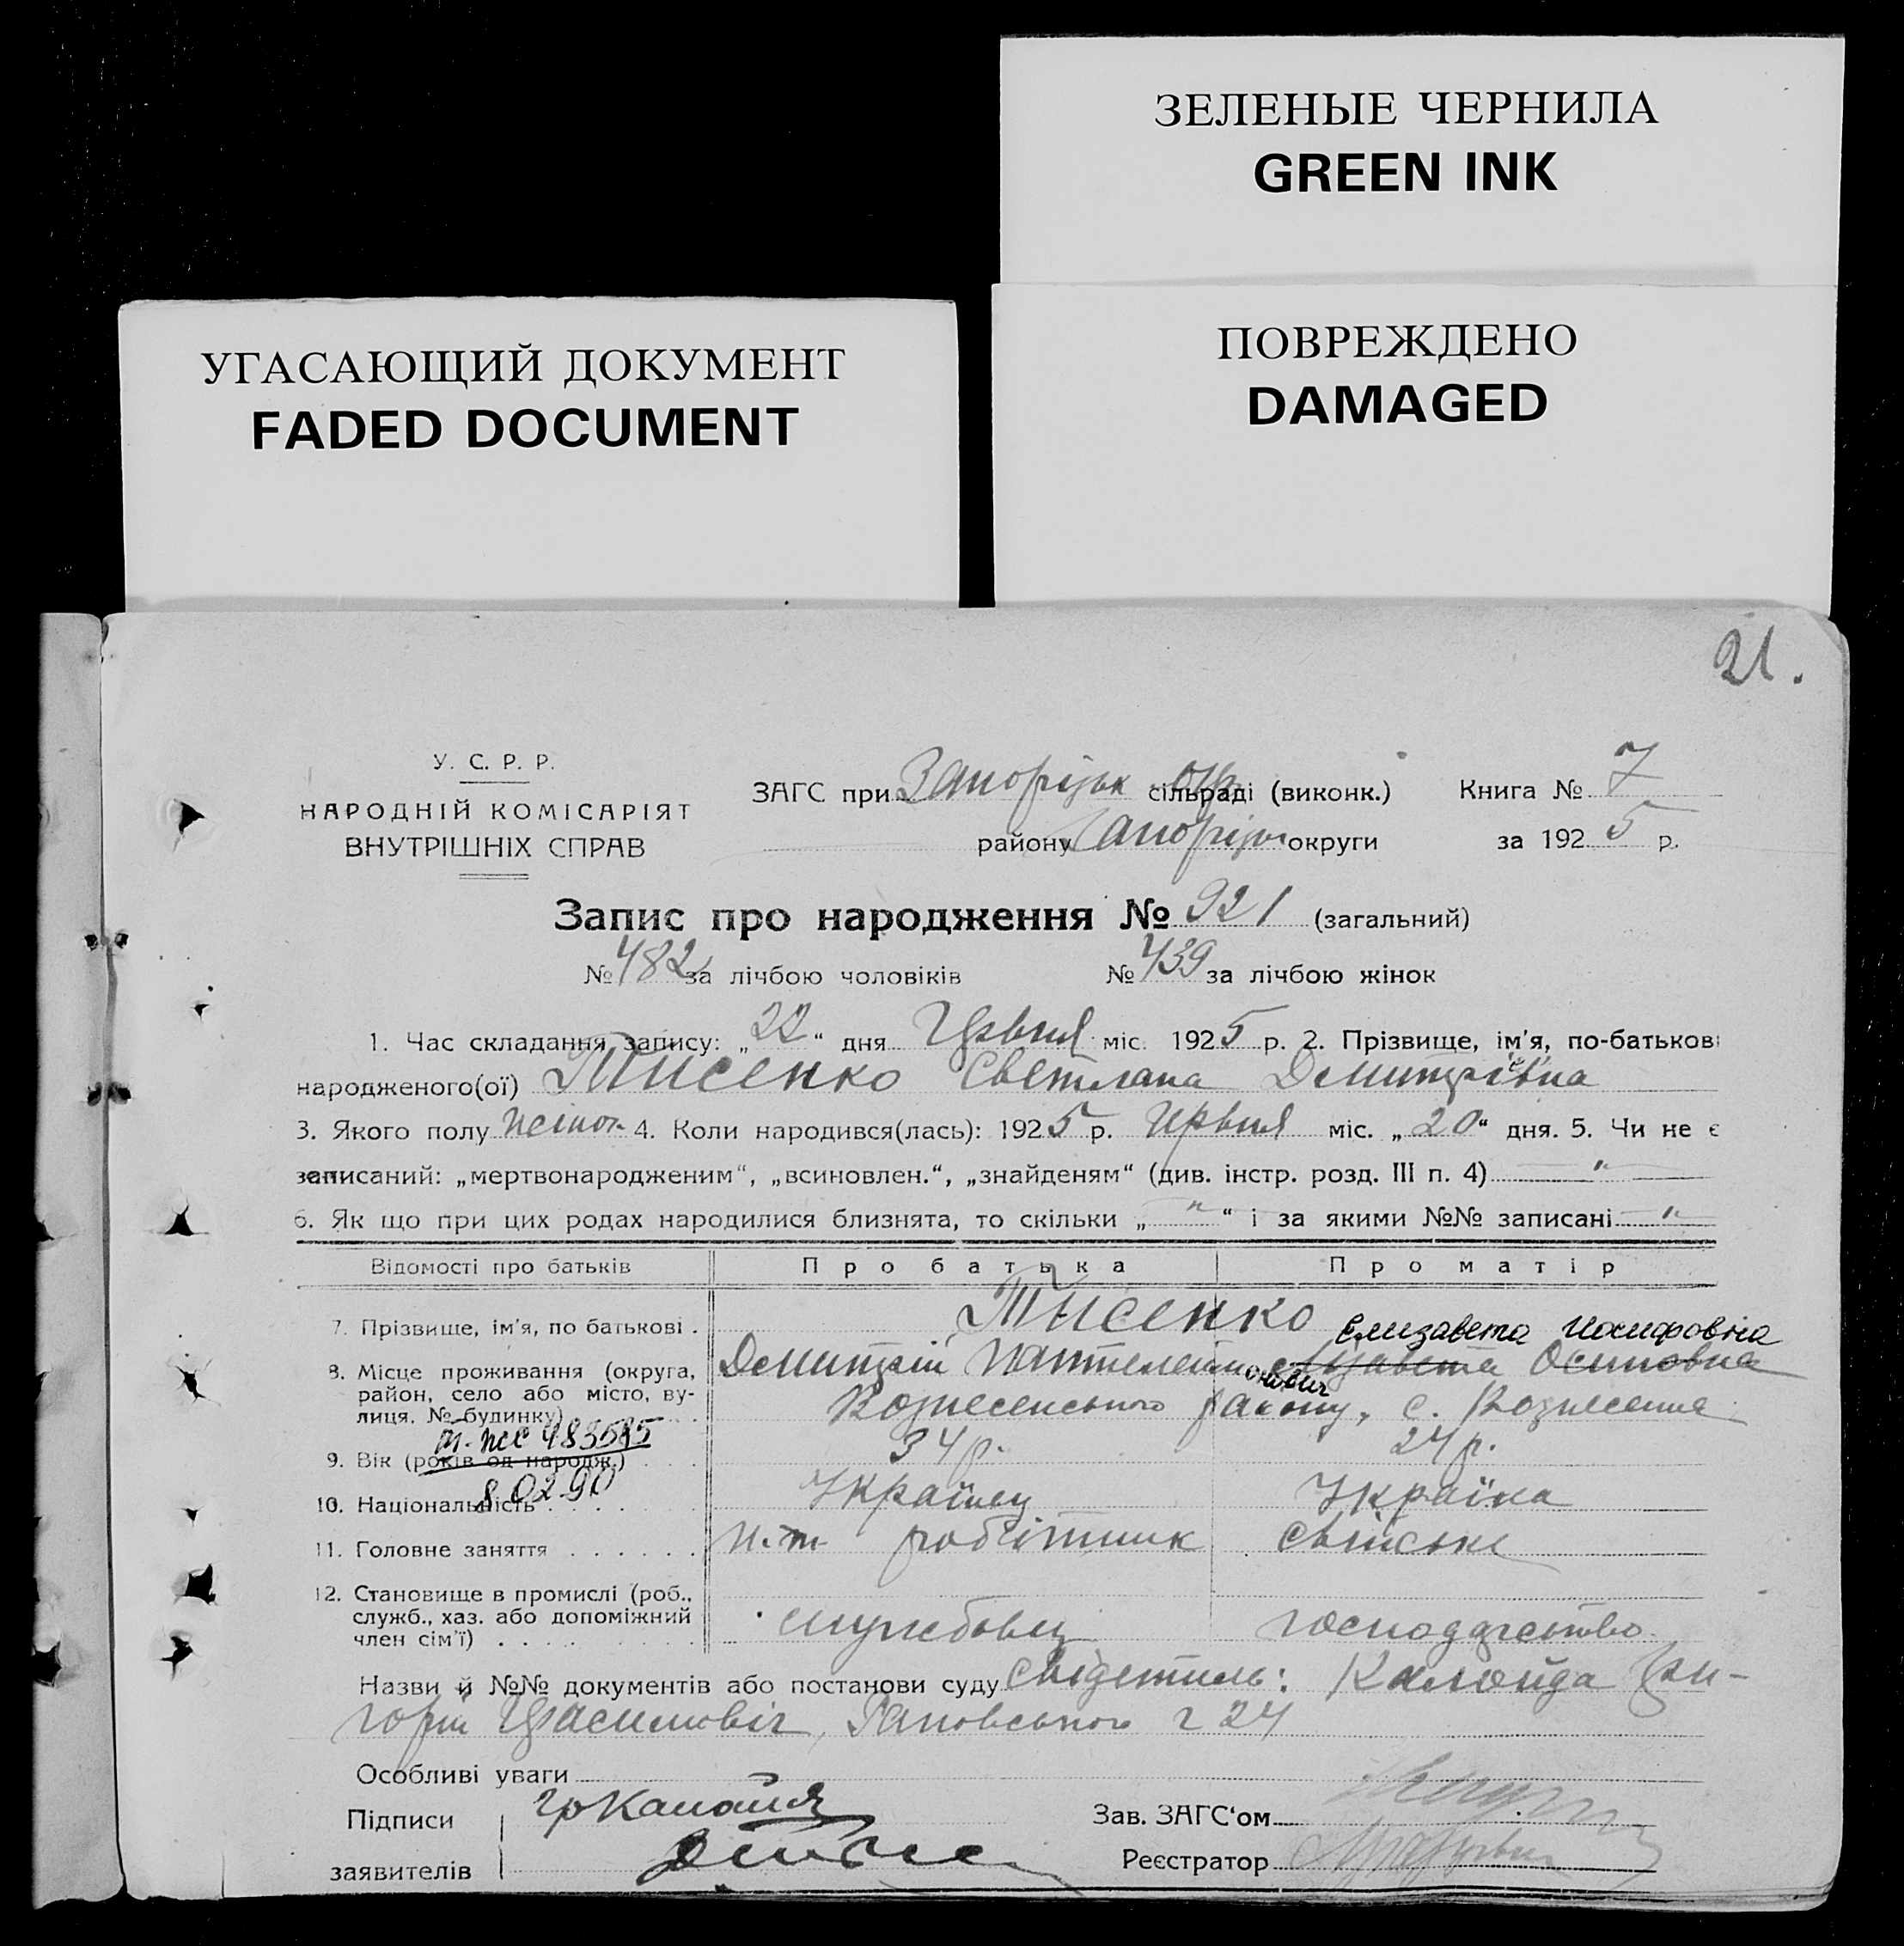 ЗЕЛЕНЫЕ ЧЕРНИЛА
GREEN INK
УГАСАЮЩИЙ ДОКУМЕНТ
FADED DOCUMENT
ПОВРЕЖДЕНО
DAMAGED
21.
У. С. Р. Р.
НАРОДНІЙ КОМІСАРІЯТ
ВНУТРІШНІХ СПРАВ
ЗАГС при Запорізьк окр сільраді (виконк.) Книга № 7
району Запоріз округи за 1925 р.
Запис про народження № 921 (загальний)
№ 482 за лічбою чоловіків № 439 за лічбою жінок
1. Час складання запису: „22“ дня Червня міс. 1925 р. 2. Прізвище, ім’я, по-батькові
народженого(ої) Тисенко Светлана Демитрівна
3. Якого полу жіноч. 4. Коли народився(лась): 1925 р. Червня міс. „20“ дня. 5. Чи не є
записаний: „мертвонародженим“, „всиновлен.“, „знайденям“ (див. інстр. розд. III п. 4) "
6. Як що при цих родах народилися близнята, то скільки „ " “ і за якими №№ записані "
Відомості про батьків Про батька Про матір
7. Прізвище, ім’я, по батькові . Тисенко Елизавета Иосифовна
8. Місце проживання (округа, район, село або місто, вулиця, № будинку) Демитрій Осиповна
Вознесенського району, с. Вознесенка
483585
9. Вік (років од народж.) . . . 34 р. 24 р.
8 02 90
10. Національність . . . . . Українец Україна
11. Головне заняття . . . . . . робітник свійське
12. Становище в промислі (роб., служб., хаз. або допоміжний член сім’ї) . . . . службовец господарство
Назви й №№ документів або постанови суду Свідетиль: Гри-
горій 24
Особливі уваги
Підписи
Зав. ЗАГС‘ом
заявителів
Реєстратор